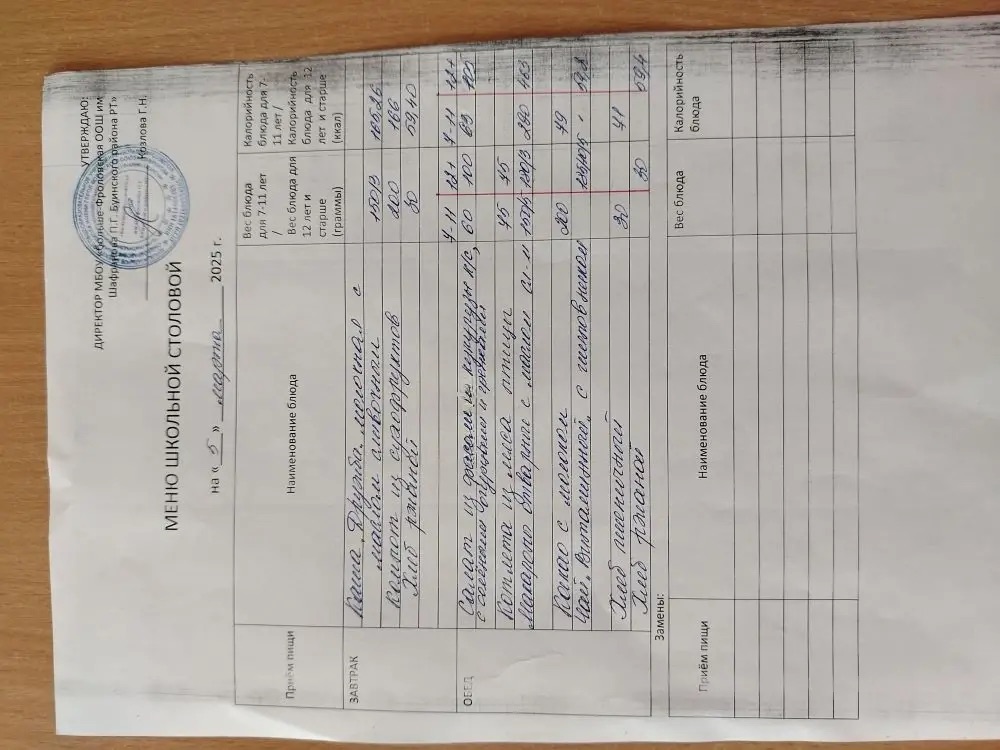 УТВЕРЖДАЮ:
ДИРЕКТОР МБОУ «Больше-Фроловская ООШ им
Шафранова П.Г. Буинского района РТ»
Козлова Г.Н.
МЕНЮ ШКОЛЬНОЙ СТОЛОВОЙ
на « 5 » марта 2025 г.
Приём пищи Наименование блюда Вес блюда для 7-11 лет / Вес блюда для 12 лет и старше (граммы) Калорийность блюда для 7-11 лет / Калорийность блюда для 12 лет и старше (ккал)
ЗАВТРАК Каша "Дружба" молочная с
маслом сливочным 150/3 165,26
Компот из сухофруктов 200 166
Хлеб ржаной 30 59,40
7-11 12+ 7-11 12+
ОБЕД Салат из фасоли и кукурузы к/с, 60 100
с солеными огурцами и гренками
Котлета из мяса птицы 75 75
Макароны отварные с маслом сл-м 290 463
Какао с молоком 200 79
Чай "Витаминный" с шиповником 59,8
Хлеб пшеничный 30 71
Хлеб ржаной 30 59,4
Замены:
Приём пищи Наименование блюда Вес блюда Калорийность блюда